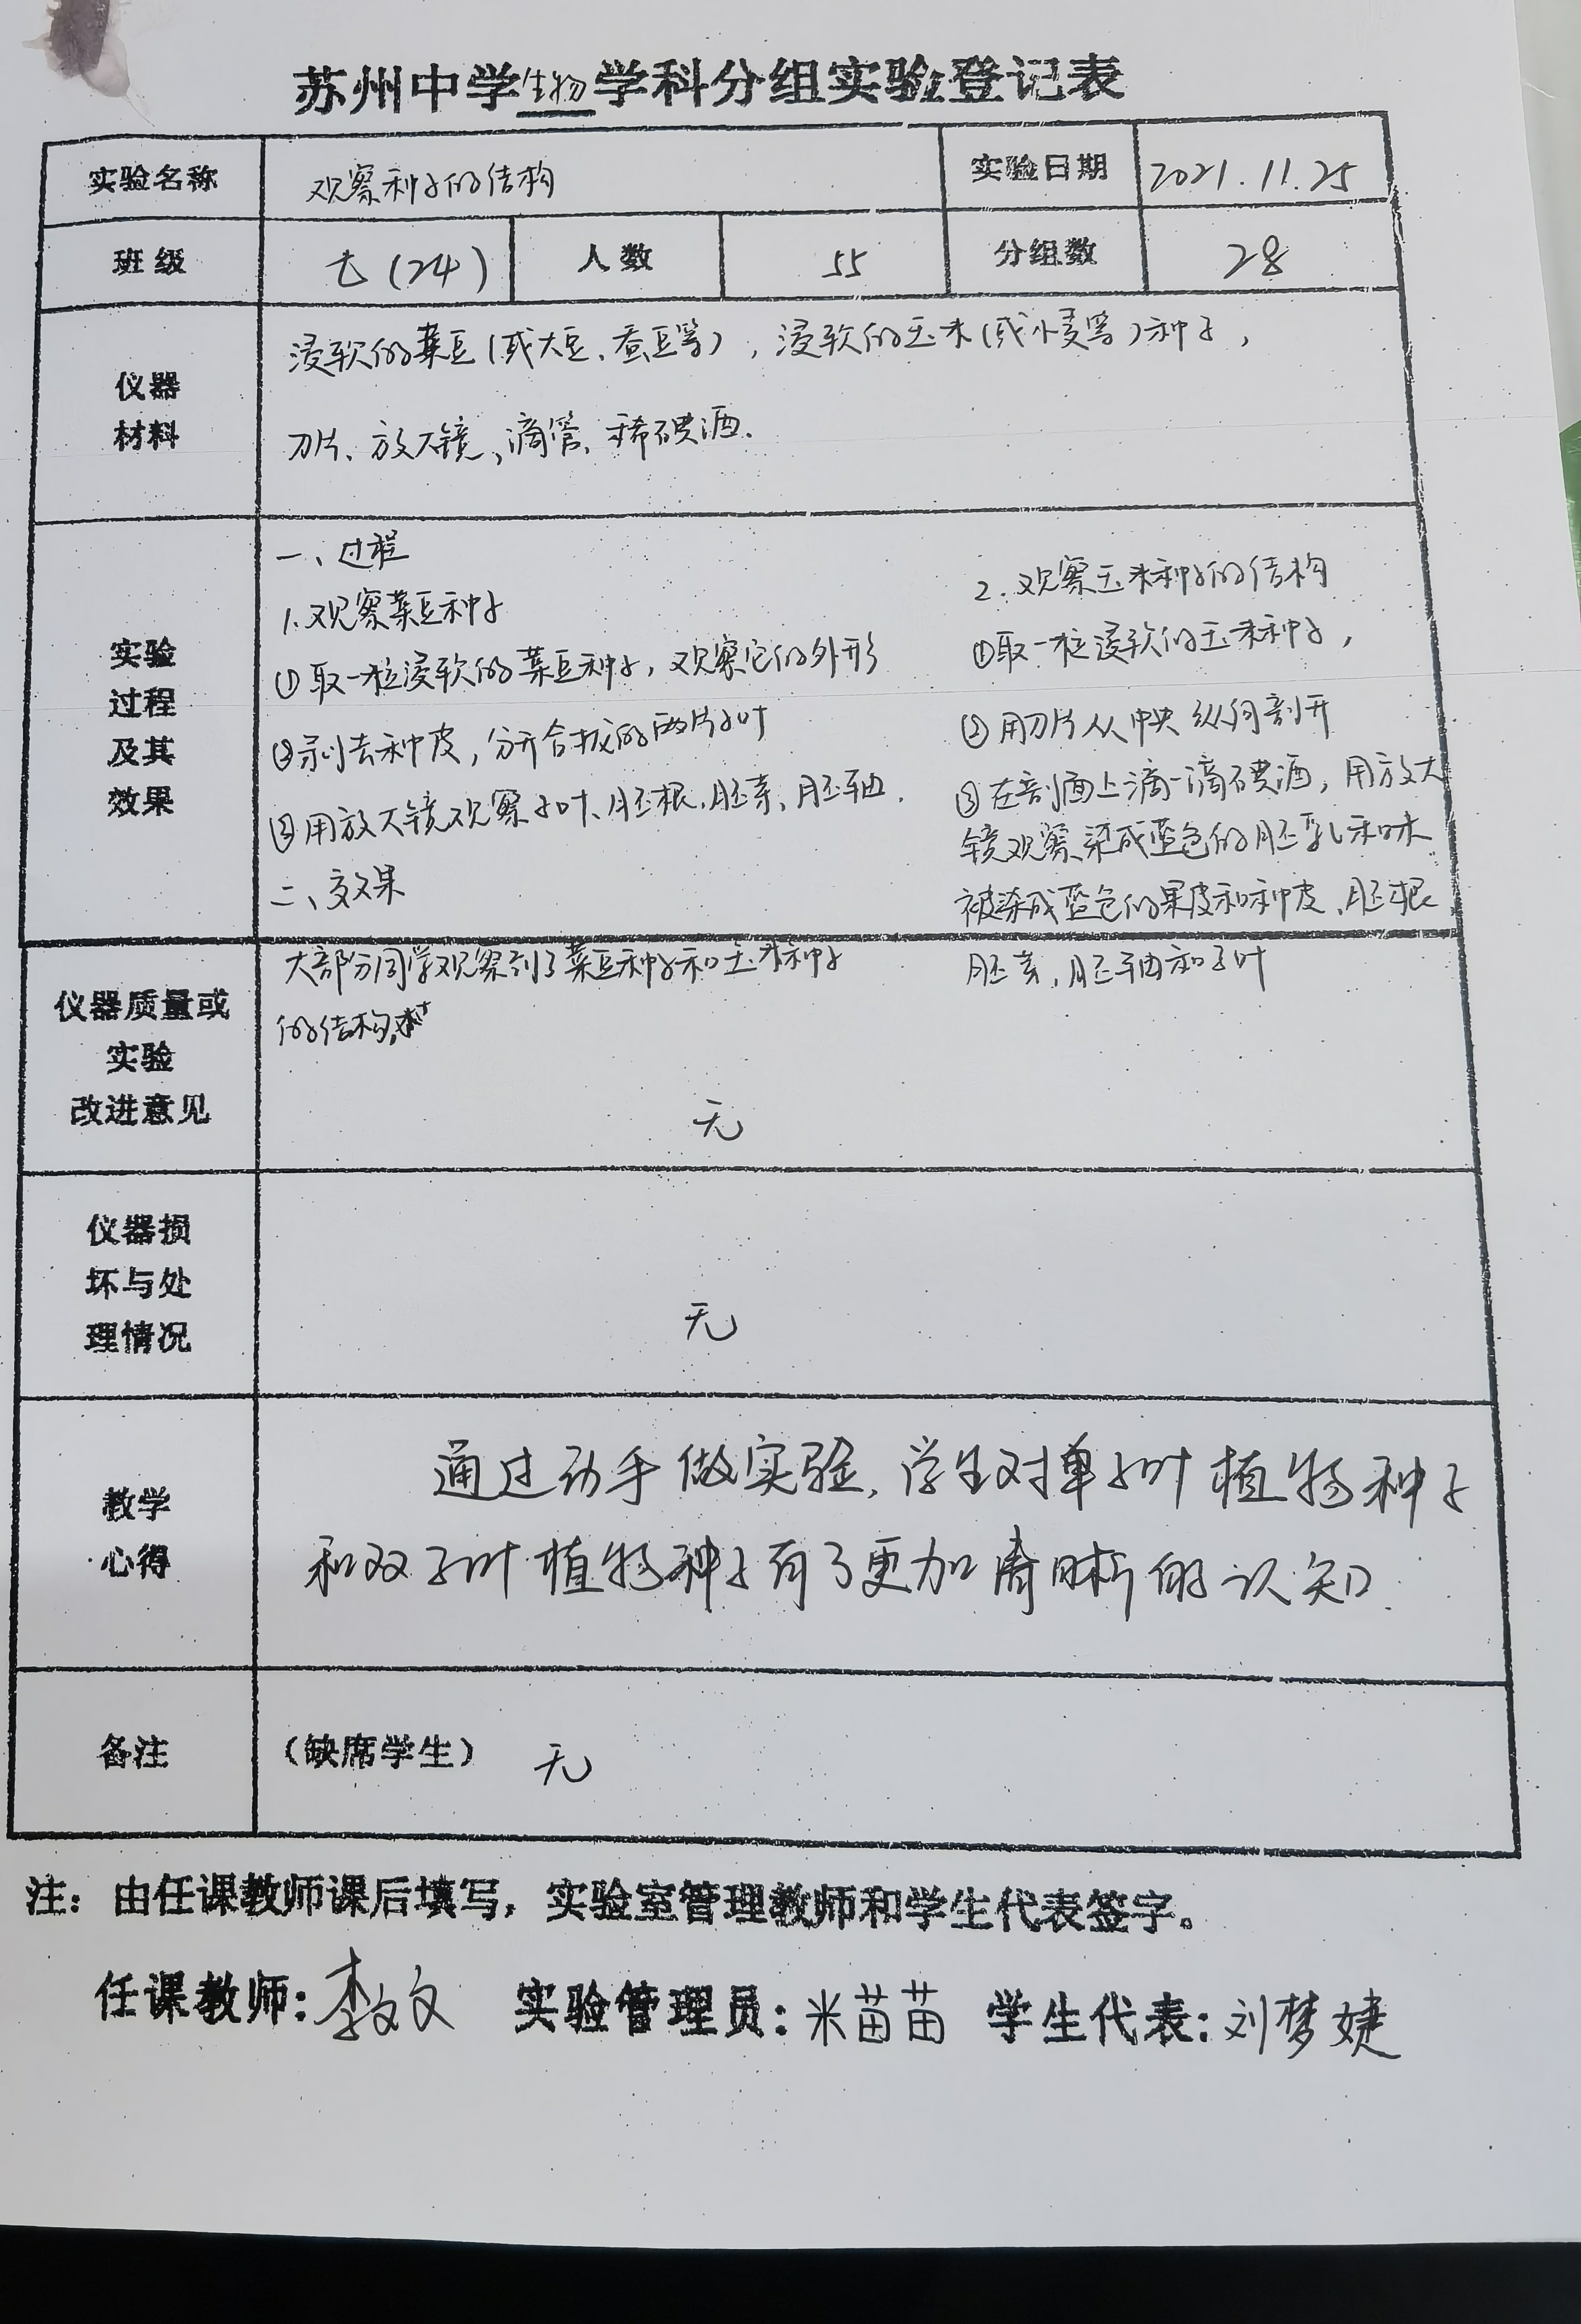 苏州中学生物学科分组实验登记表
实验名称 观察种子的结构 实验日期 2021.11.25
班级 七(24) 人数 55 分组数 28
仪器
材料
浸软的菜豆(或大豆、蚕豆等),浸软的玉米(或小麦等)种子,
刀片、放大镜、滴管、稀碘酒.
实验
过程
及其
效果
一、过程
1.观察菜豆种子
①取一粒浸软的菜豆种子,观察它的外形
②剥去种皮,分开合拢的两片子叶
③用放大镜观察子叶、胚根、胚芽、胚轴.
二、效果
大部分同学观察到了菜豆种子和玉米种子
的结构.
2.观察玉米种子的结构
①取一粒浸软的玉米种子,
②用刀片从中央纵向剖开
③在剖面上滴一滴碘酒,用放大
镜观察染成蓝色的胚乳和未
被染成蓝色的果皮和种皮、胚根
胚芽,胚轴和子叶
仪器质量或
实验
改进意见
无
仪器损
坏与处
理情况
无
教学
心得
通过动手做实验,学生对单子叶植物种子
和双子叶植物种子有了更加清晰的认知.
备注 (缺席学生) 无
注:由任课教师课后填写,实验室管理教师和学生代表签字。
任课教师:李文文 实验管理员:米苗苗 学生代表:刘梦婕